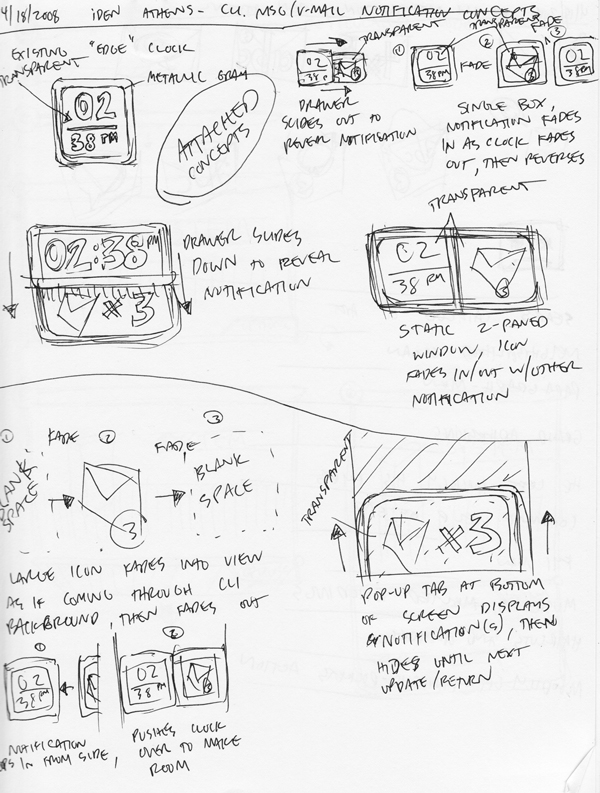 4/18/2008 iDEN ATHENS - CLI MSG/V-MAIL NOTIFICATION CONCEPTS
EXISTING "EDGE" CLOCK
TRANSPARENT
METALLIC GRAY
02
38 PM
ATTACHED
CONCEPTS
TRANSPARENT
02
38 P
DRAWER
SLIDES OUT TO
REVEAL NOTIFICATION
TRANSPARENT
FADE
1
2
3
02
38 PM
FADE
02
38 PM
SINGLE BOX,
NOTIFICATION FADES
IN AS CLOCK FADES
OUT, THEN REVERSES
02:38 PM
x 3
DRAWER SLIDES
DOWN TO REVEAL
NOTIFICATION
TRANSPARENT
02
38 PM
3
STATIC 2-PANED
WINDOW, ICON
FADES IN/OUT W/OTHER
NOTIFICATION
1
FADE
2
FADE
3
BLANK
SPACE
3
BLANK
SPACE
LARGE ICON FADES INTO VIEW
AS IF COMING THROUGH CLI
BACKGROUND, THEN FADES OUT
TRANSPARENT
x 3
POP-UP TAB AT BOTTOM
OF SCREEN DISPLAYS
NOTIFICATION(S), THEN
HIDES UNTIL NEXT
UPDATE/RETURN
1
02
38 PM
2
02
38 PM
NOTIFICATION
OPS IN FROM SIDE,
PUSHES CLOCK
OVER TO MAKE
ROOM